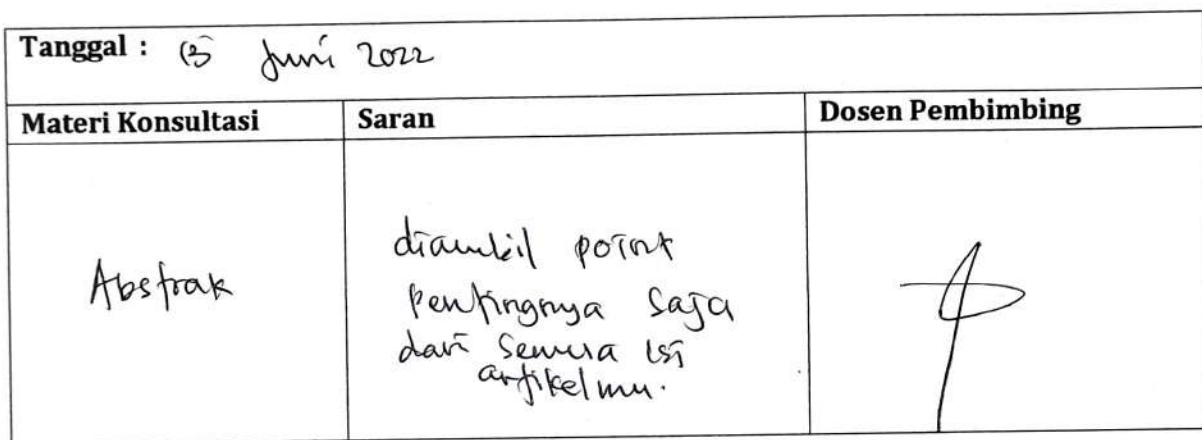 Tanggal : 15 Juni 2022
Materi Konsultasi Saran Dosen Pembimbing
Abstrak
diambil point
pentingnya saja
dari semua isi
artikelmu.